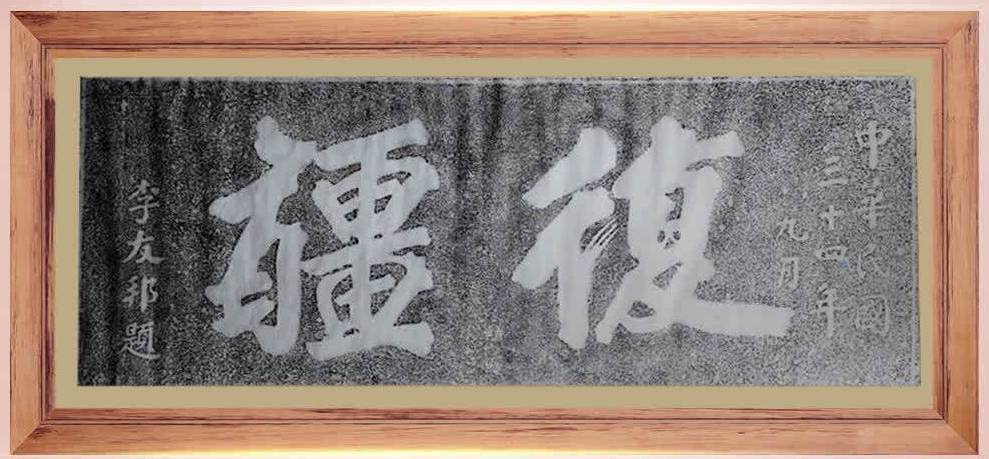 中華民國
三十四年
九月
復疆
李友邦題